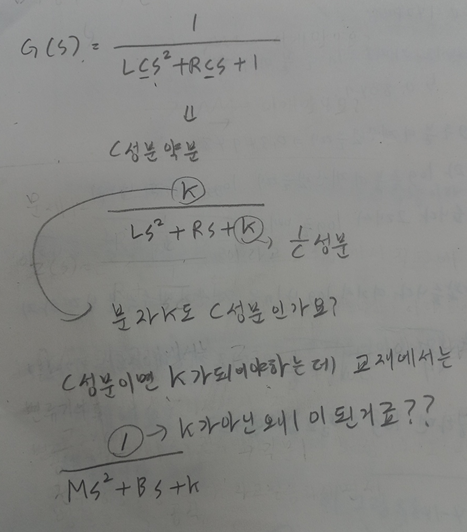 G(S) = 1 / LCS²+RCS+1
⇓
C성분약분
K / LS²+RS+K → 1/C 성분
분자K도 C성분인가요?
C성분이면 K가되어야하는데 교재에서는
1 → K가아닌 왜 1이 된거죠??
MS²+BS+K